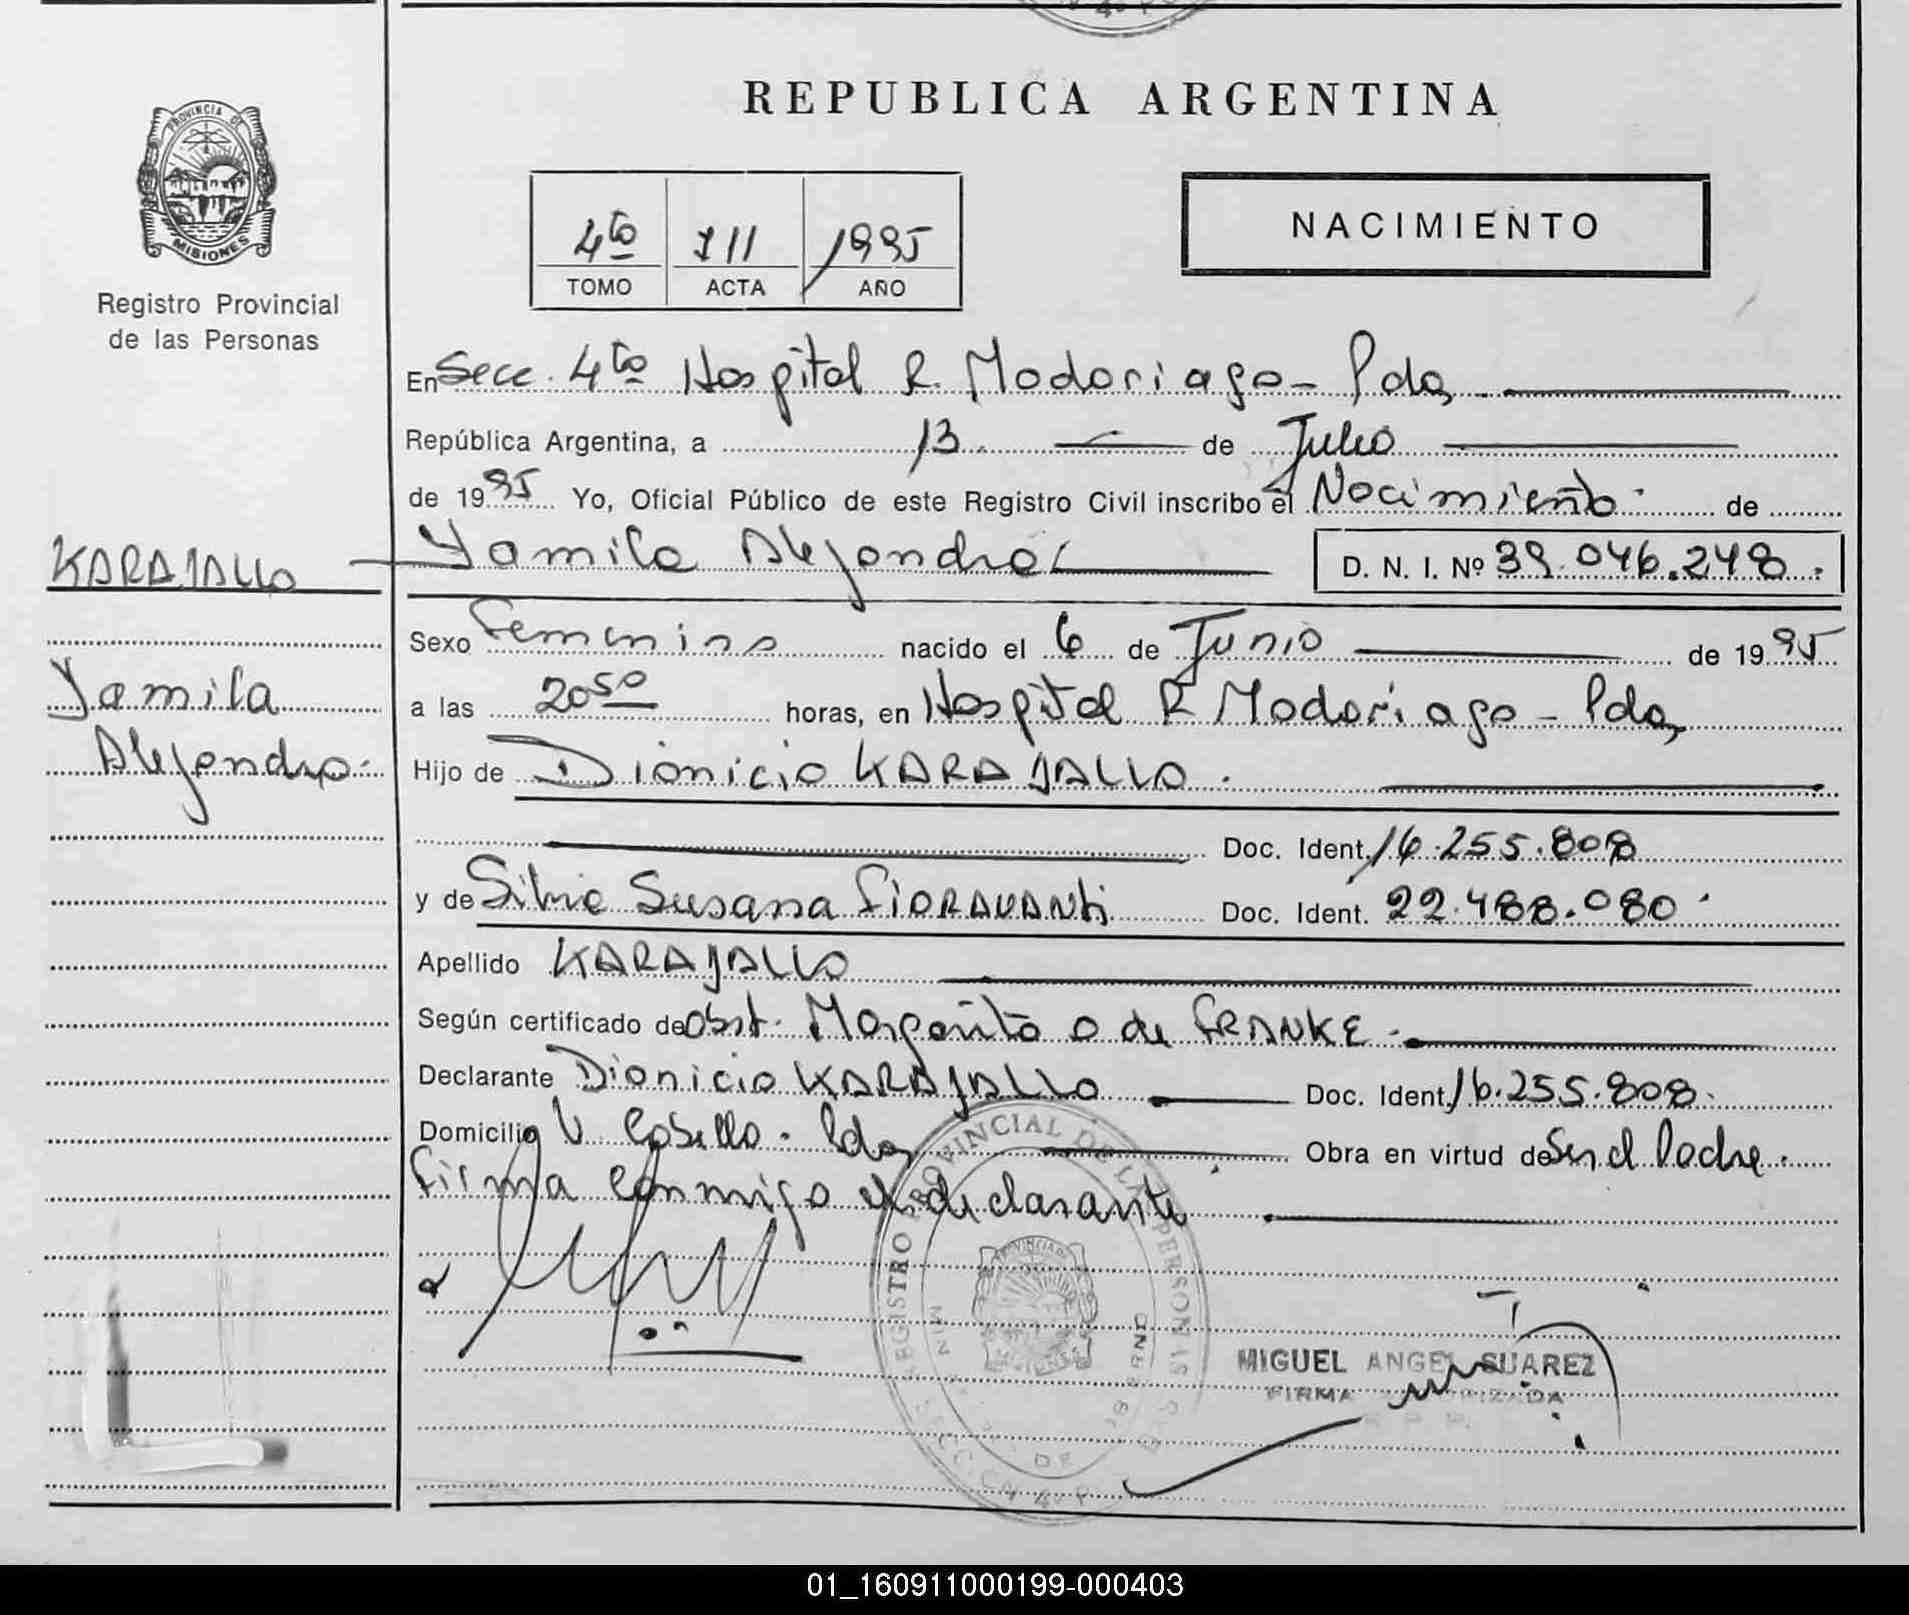 REPUBLICA ARGENTINA
PROVINCIA DE
MISIONES
Registro Provincial
de las Personas
4to 111 1995
TOMO ACTA AÑO
NACIMIENTO
En Secc. 4to Hospital R. Madariaga - Pdas
República Argentina, a 13 de Julio
de 1995 Yo, Oficial Público de este Registro Civil inscribo el Nacimiento de
KARAJALLO
Yamila Alejandra
Yamila Alejandra D. N. I. Nº 39.046.248
Sexo Femenino nacido el 6 de Junio de 1995
a las 20 50 horas, en Hospital R Madariaga - Pdas
Hijo de Dionicio KARAJALLO
Doc. Ident. 16.255.808
y de Silvia Susana FIORAVANTI Doc. Ident. 22.488.080
Apellido KARAJALLO
Según certificado de Obst. Margarita O de FRANKE
Declarante Dionicio KARAJALLO Doc. Ident. 16.255.808
Domicilio V. Cabello - Pdas Obra en virtud de Ser el Padre.
Firma conmigo el declarante
REGISTRO PROVINCIAL DE LAS PERSONAS
MIGUEL ANGEL SUAREZ
FIRMA AUTORIZADA
01_160911000199-000403